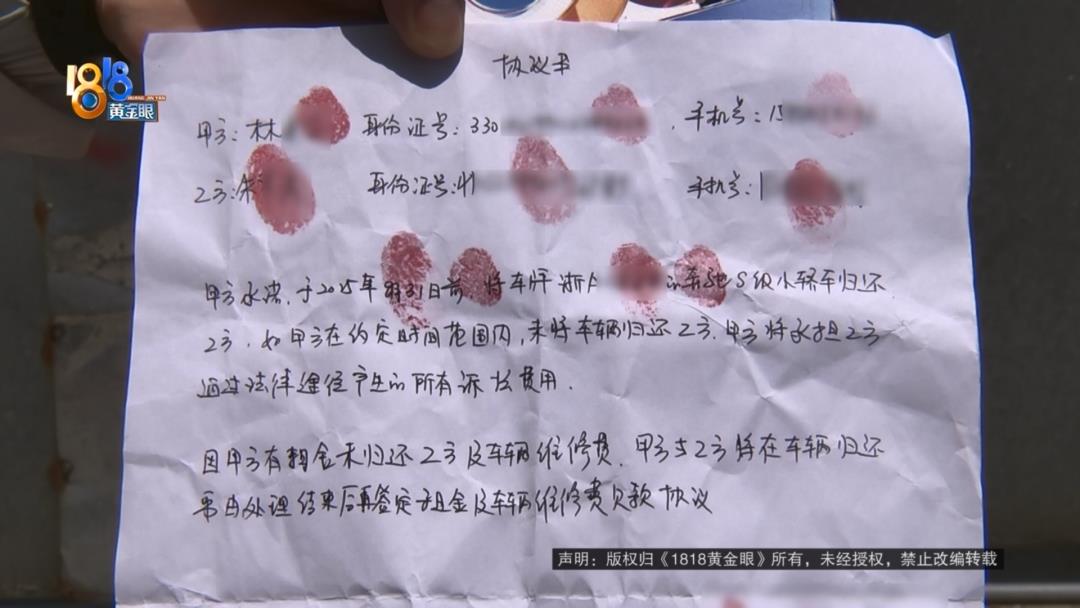 1818
HUANG JIN YAN
黄金眼
协议书
甲方:林 身份证号:330 手机号:15
乙方:朱 身份证号:41 手机号:1
甲方承诺,于2025年8月31日前 将车牌浙A 的奔驰S级小轿车归还
乙方.如甲方在约定时间范围内,未将车辆归还乙方.甲方将承担乙方
通过法律途径产生的所有诉讼费用.
因甲方有租金未归还乙方及车辆维修费.甲方与乙方将在车辆归还
处理结束后再签定租金及车辆维修费欠款协议
声明:版权归《1818黄金眼》所有,未经授权,禁止改编转载